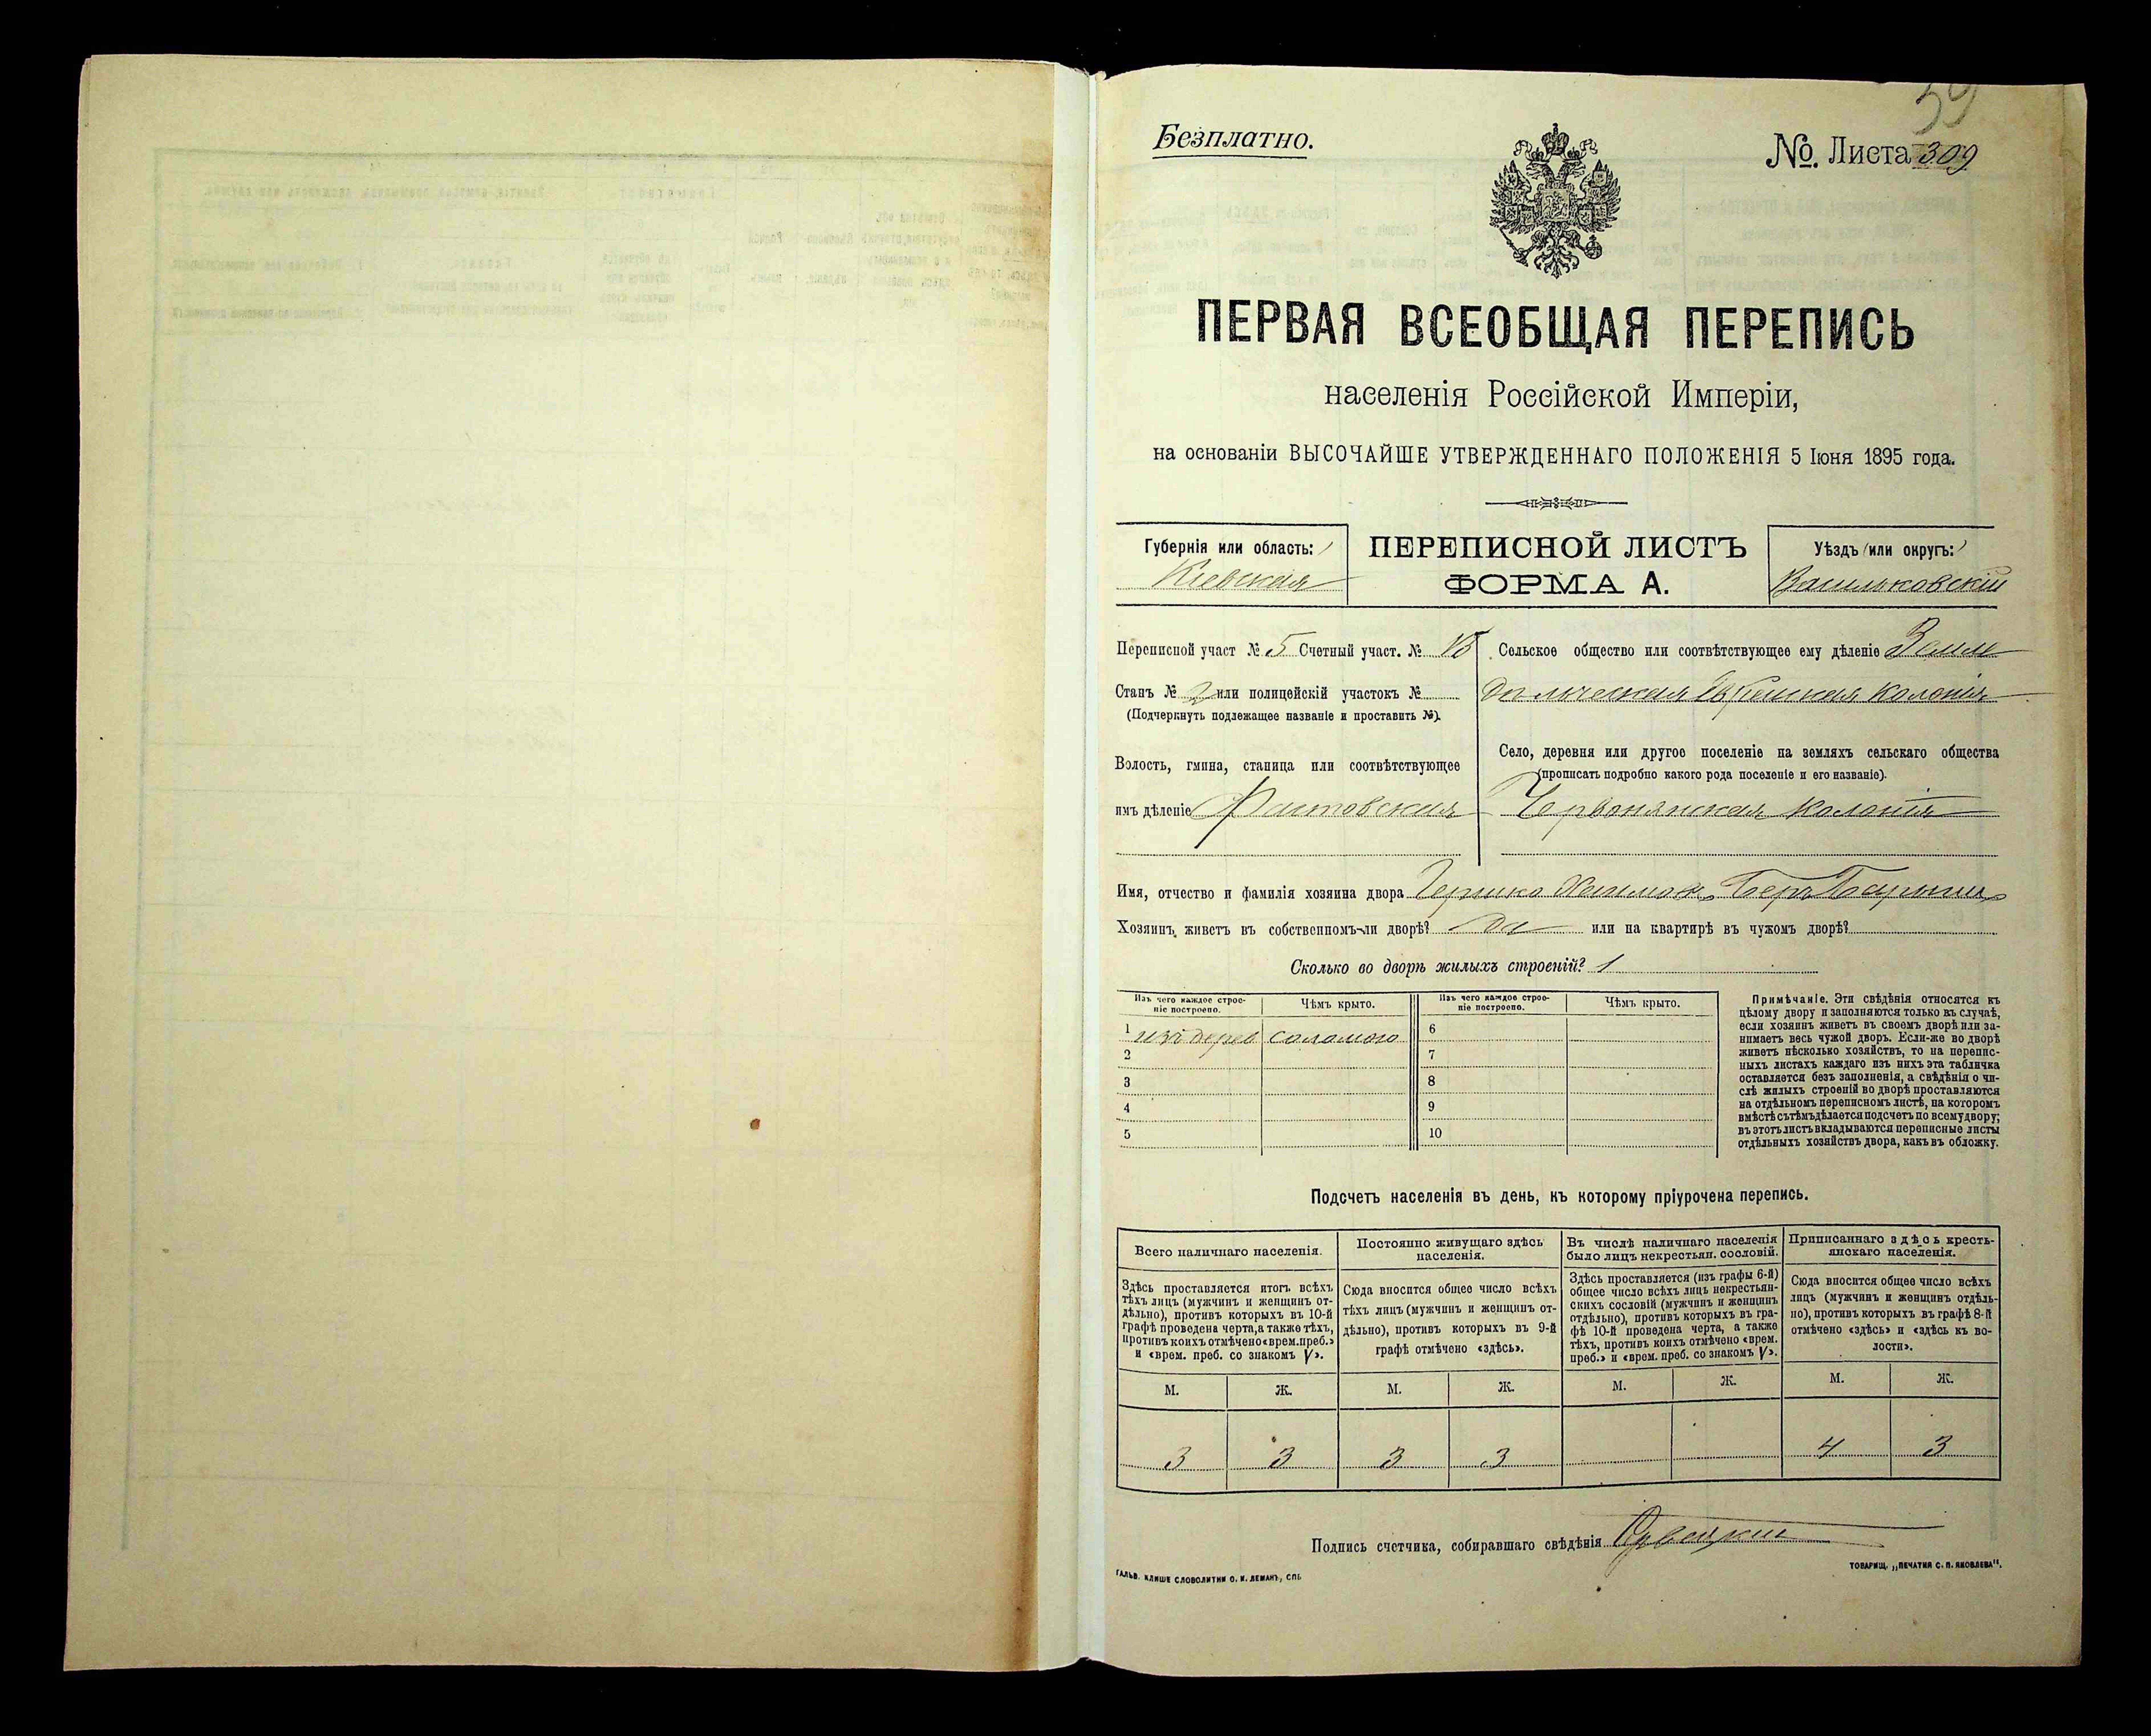 59
Безплатно.
№. Листа 309
ПЕРВАЯ ВСЕОБЩАЯ ПЕРЕПИСЬ
населенія Россійской Имперіи,
на основаніи ВЫСОЧАЙШЕ УТВЕРЖДЕННАГО ПОЛОЖЕНІЯ 5 Іюня 1895 года.
Губернія или область:
Кіевская
ПЕРЕПИСНОЙ ЛИСТЪ
ФОРМА А.
Уѣздъ или округъ:
Васильковскій
Переписной участ № 5 Счетный участ. №
Станъ № 2 или полицейскій участокъ №
(Подчеркнуть подлежащее названіе и проставить №).
Волость, гмина, станица или соотвѣтствующее
имъ дѣленіе Фастовская
Сельское общество или соотвѣтствующее ему дѣленіе Земле
дѣльческая Еврейская колонія
Село, деревня или другое поселеніе на земляхъ сельскаго общества
(прописать подробно какого рода поселеніе и его названіе).
Червонянская колонія
Имя, отчество и фамилія хозяина двора Гершко Хаимов Беръ
Хозяинъ живетъ въ собственномъ-ли дворѣ? да или на квартирѣ въ чужомъ дворѣ?
Сколько во дворѣ жилыхъ строеній? 1
Изъ чего каждое строеніе построено.
Чѣмъ крыто.
Изъ чего каждое строеніе построено.
Чѣмъ крыто.
1 изъ дерев соломою 6
2 7
3 8
4 9
5 10
Примѣчаніе. Эти свѣдѣнія относятся къ
цѣлому двору и заполняются только въ случаѣ,
если хозяинъ живетъ въ своемъ дворѣ или за-
нимаетъ весь чужой дворъ. Если-же во дворѣ
живетъ нѣсколько хозяйствъ, то на перепис-
ныхъ листахъ каждаго изъ нихъ эта табличка
оставляется безъ заполненія, а свѣдѣнія о чи-
слѣ жилыхъ строеній во дворѣ проставляются
на отдѣльномъ переписномъ листѣ, на которомъ
вмѣстѣ съ тѣмъ дѣлается подсчетъ по всему двору;
въ этотъ листъ вкладываются переписные листы
отдѣльныхъ хозяйствъ двора, какъ въ обложку.
Подсчетъ населенія въ день, къ которому пріурочена перепись.
Всего наличнаго населенія.
Здѣсь проставляется итогъ всѣхъ
тѣхъ лицъ (мужчинъ и женщинъ от-
дѣльно), противъ которыхъ въ 10-й
графѣ проведена черта, а также тѣхъ,
противъ коихъ отмѣчено «врем. преб.»
и «врем. преб. со знакомъ V».
Постоянно живущаго здѣсь
населенія.
Сюда вносится общее число всѣхъ
тѣхъ лицъ (мужчинъ и женщинъ от-
дѣльно), противъ которыхъ въ 9-й
графѣ отмѣчено «здѣсь».
Въ числѣ наличнаго населенія
было лицъ некрестьян. сословій.
Здѣсь проставляется (изъ графы 6-й)
общее число всѣхъ лицъ некрестьян-
скихъ сословій (мужчинъ и женщинъ
отдѣльно), противъ которыхъ въ гра-
фѣ 10-й проведена черта, а также
тѣхъ, противъ коихъ отмѣчено «врем.
преб.» и «врем. преб. со знакомъ V».
Приписаннаго здѣсь кресть-
янскаго населенія.
Сюда вносится общее число всѣхъ
лицъ (мужчинъ и женщинъ отдѣль-
но), противъ которыхъ въ графѣ 8-й
отмѣчено «здѣсь» и «здѣсь къ во-
лости».
М. Ж. М. Ж. М. Ж. М. Ж.
3 3 3 3 4 3
Подпись счетчика, собиравшаго свѣдѣнія
ГАЛЬВ. КЛИШЕ СЛОВОЛИТНИ О. И. ЛЕМАНЪ, СПБ.
ТОВАРИЩ. „ПЕЧАТНЯ С. П. ЯКОВЛЕВА".